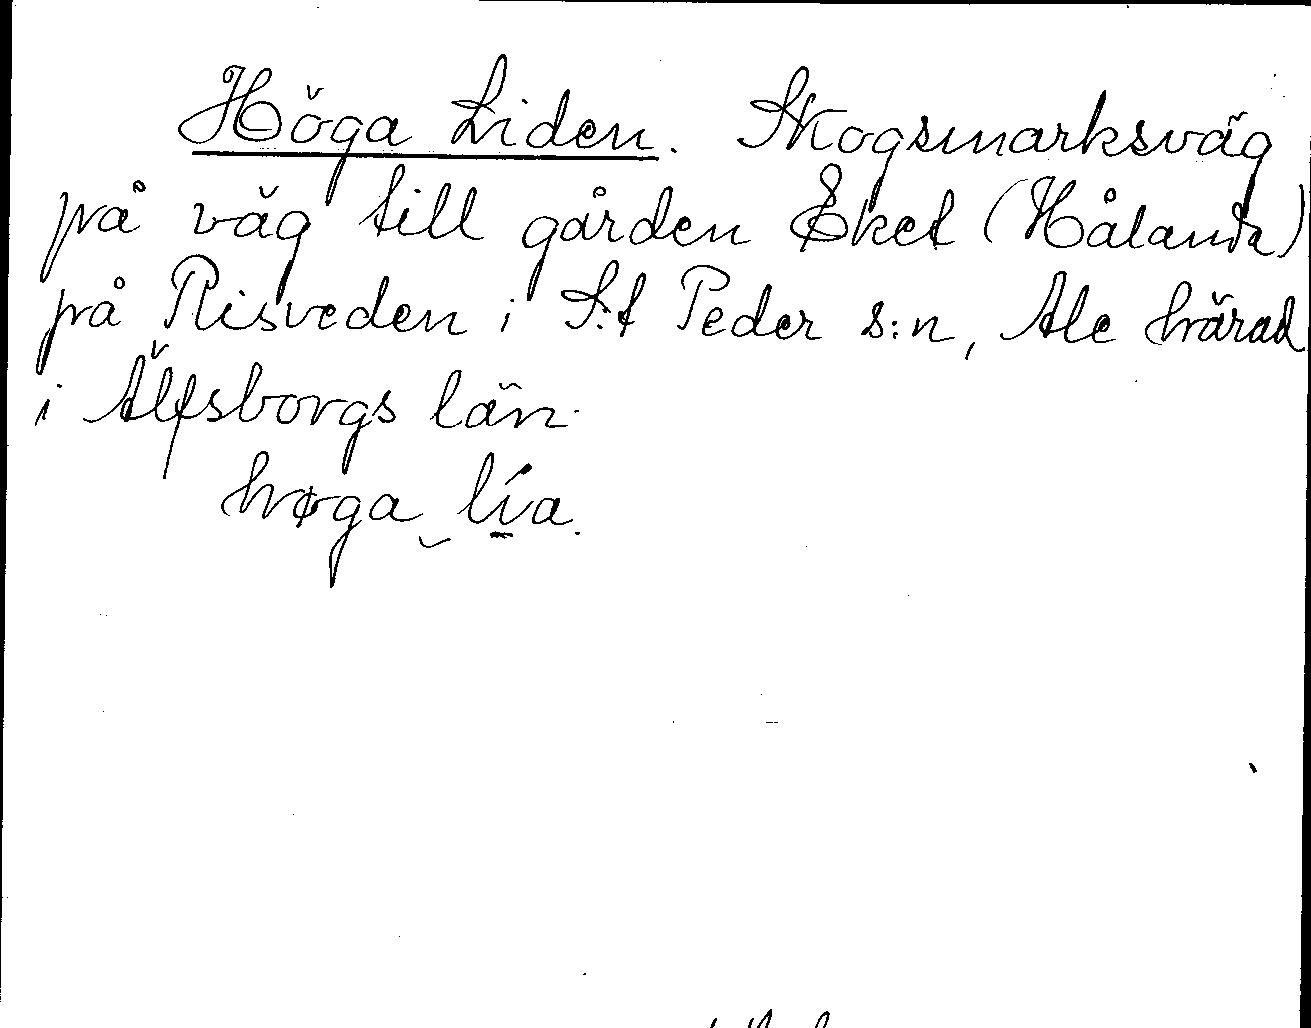 Höga Liden. Skogsmarksväg
på väg till gården Eket (Hålanda)
på Risveden i S:t Peder s:n, Ale härad
i Älfsborgs län.
høga lía.